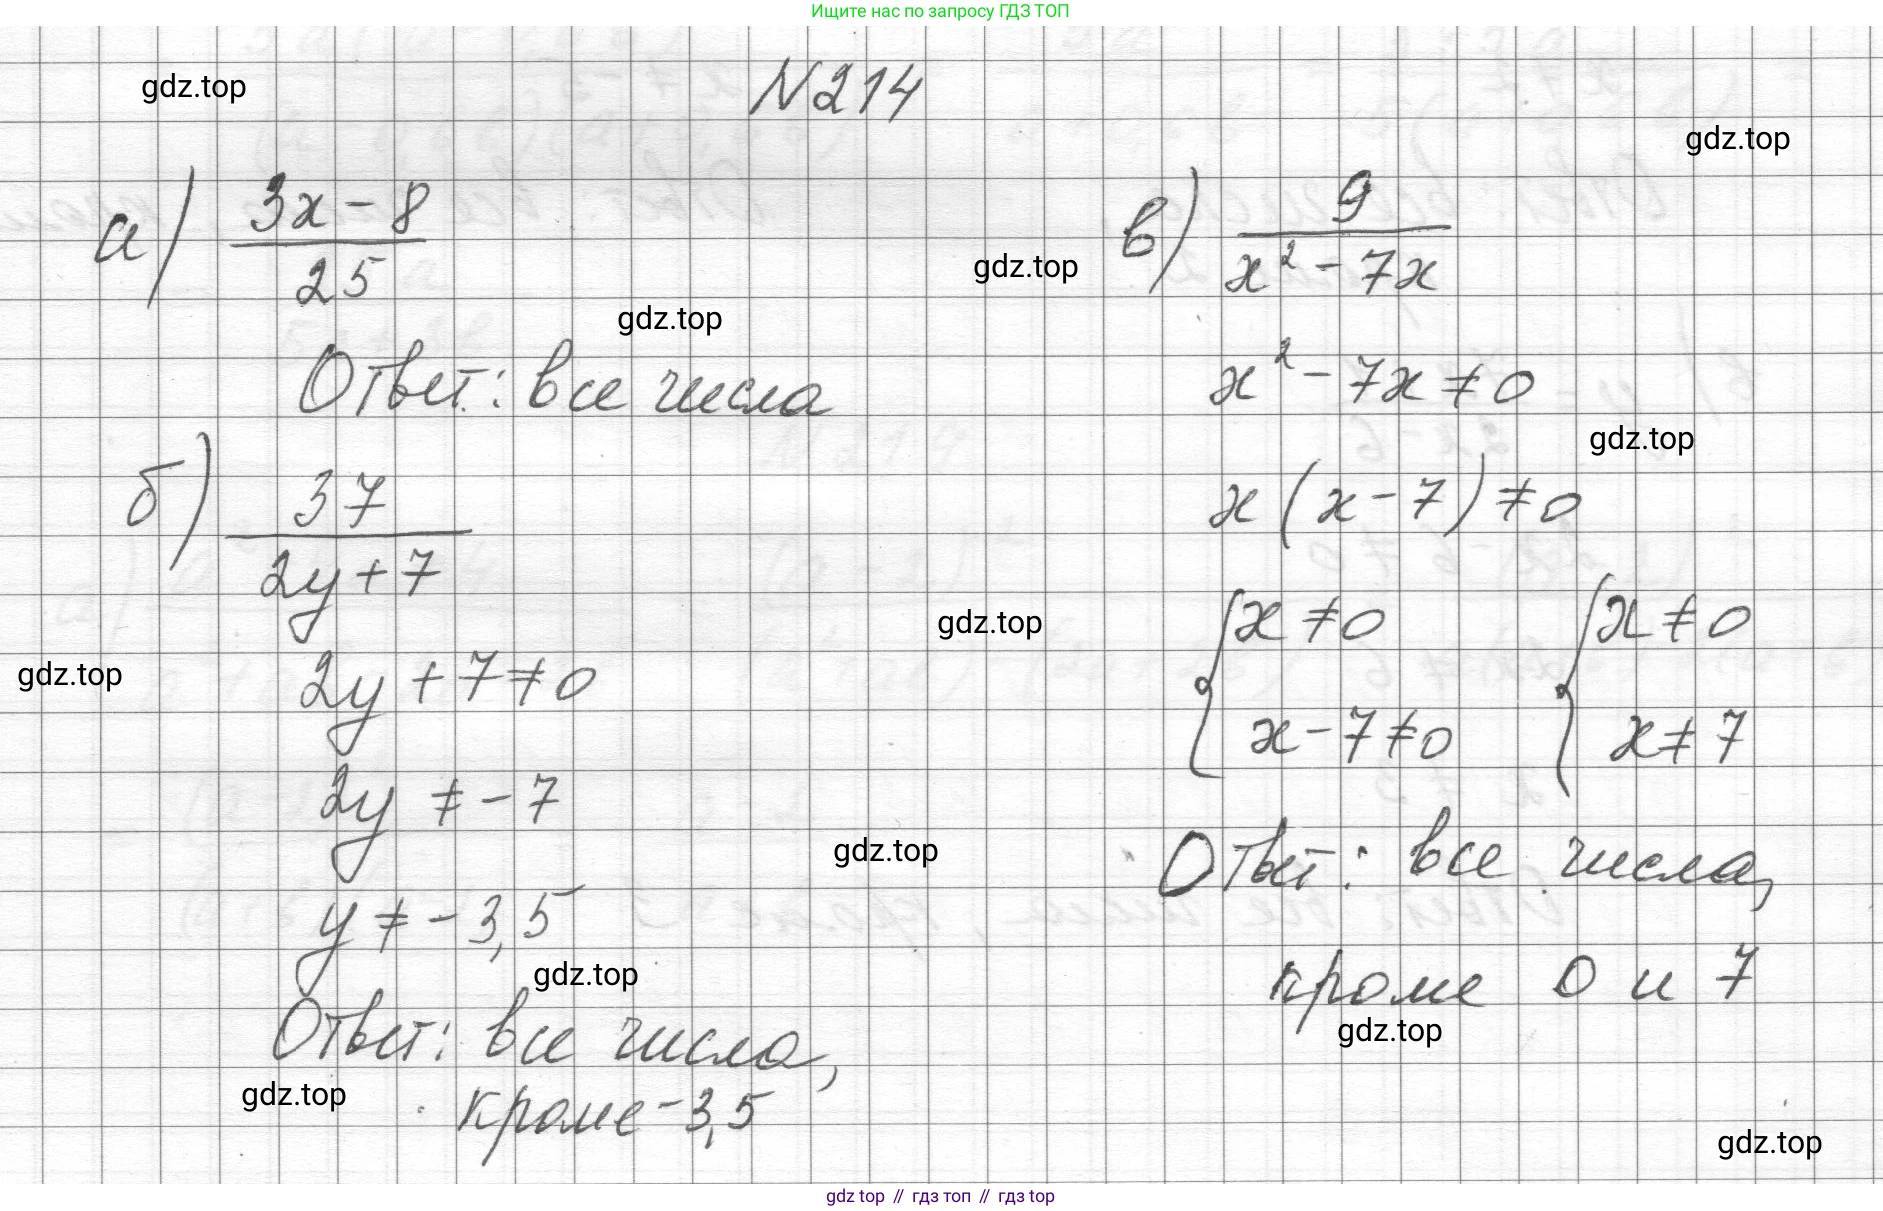 Ищите нас по запросу ГДЗ ТОП
gdz.top
N214
gdz.top
а) (3x - 8)/25
gdz.top
gdz.top
Ответ: все числа
б) 37/(2y + 7)
gdz.top
2y + 7 ≠ 0
2y ≠ -7
y ≠ -3,5
gdz.top
Ответ: все числа,
gdz.top
кроме -3,5
в) 9/(x² - 7x)
x² - 7x ≠ 0
gdz.top
x(x - 7) ≠ 0
gdz.top
{ x ≠ 0 { x ≠ 0
x - 7 ≠ 0 x ≠ 7
gdz.top
Ответ: все числа,
кроме 0 и 7
gdz.top
gdz.top
gdz top // гдз топ // гдз top